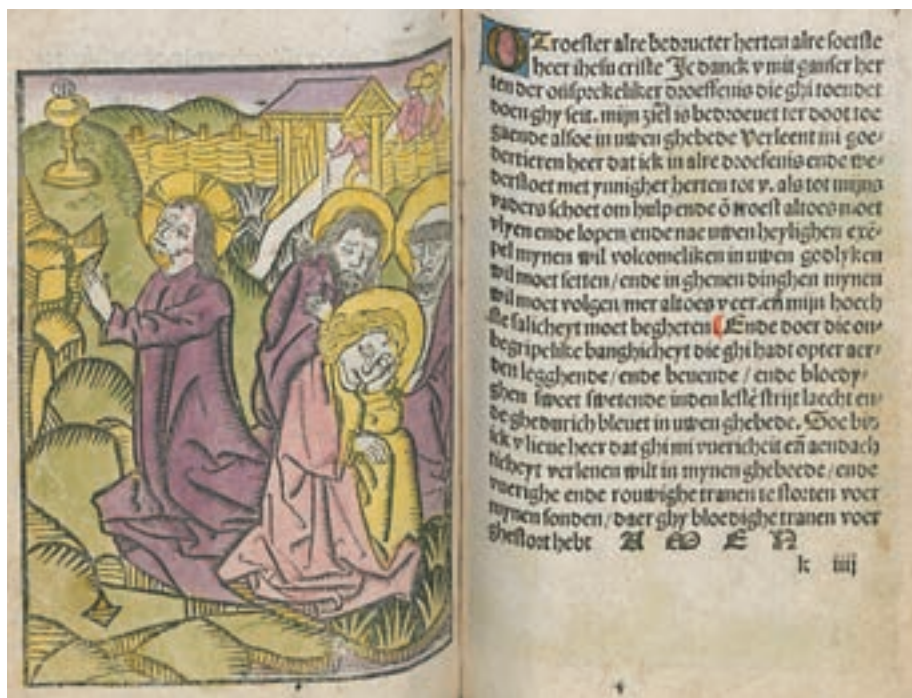 O Troester alre bedructer herten alre soetste
heer ihesu criste Ic danck v mit ganser her
ten der onsprekeliker droeffenis die ghi toendet
doen ghy seit. mijn ziel is bedroeuet ter doot toe
gaende alsoe in uwen ghebede Verleent mi goe/
dertieren heer dat ick in alre droefenis ende we/
derstoet met ynnigher herten tot v. als tot mijns
vaders schoet om hulp ende troest altoes moet
vlyen ende lopen/ ende nae uwen heylighen exē/
pel mynen wil volcomeliken in uwen godlyken
wil moet setten/ ende in ghenen dinghen mynen
wil moet volgen/ mer altoes v eer. eñ mijn hoech
ste salicheyt moet begheren ¶ Ende doer die on/
begripelike banghicheyt die ghi hadt opter aer/
den legghende/ ende beuende/ ende bloedy/
ghen sweet swetende inden lestē strijt laecht en/
de ghedurich bleuet in uwen ghebede. Soe bid
ick v lieue heer dat ghi mi vuericheit eñ aendach
ticheyt verlenen wilt in mynen ghebede/ ende
vuerighe ende rouwighe tranen te storten voer
mynen sonden/ daer ghy bloedighe tranen voer
ghestort hebt A M E N
k iiij